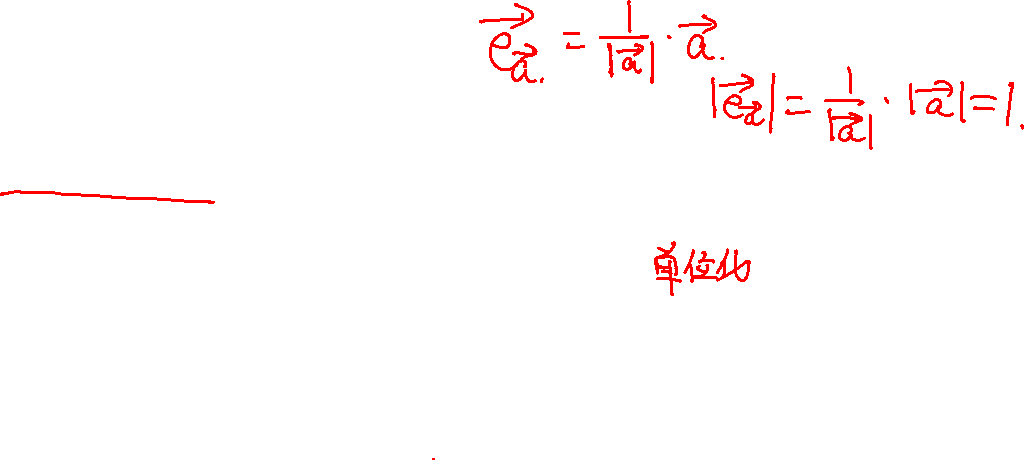 $\overrightarrow{e_{\vec{a}}} = \frac{1}{|\vec{a}|} \cdot \vec{a}.$
$|\overrightarrow{e_{\vec{a}}}| = \frac{1}{|\vec{a}|} \cdot |\vec{a}| = 1.$
单位化